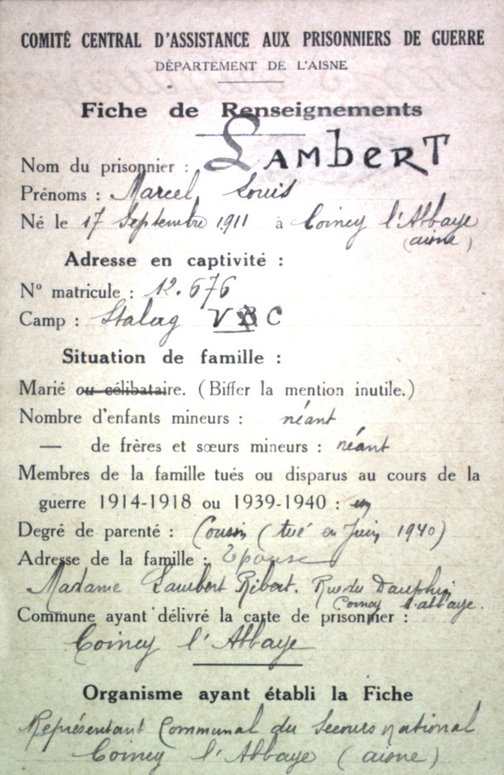 COMITÉ CENTRAL D'ASSISTANCE AUX PRISONNIERS DE GUERRE
DÉPARTEMENT DE L'AISNE
Fiche de Renseignements
Nom du prisonnier : LAMBERT
Prénoms : Marcel Louis
Né le 17 Septembre 1911 à Coincy l'Abbaye
(aisne)
Adresse en captivité :
N° matricule : 12.676
Camp : Stalag V C
Situation de famille :
Marié ou célibataire. (Biffer la mention inutile.)
Nombre d'enfants mineurs : néant
— de frères et sœurs mineurs : néant
Membres de la famille tués ou disparus au cours de la
guerre 1914-1918 ou 1939-1940 : un
Degré de parenté : Cousin (tué en Juin 1940)
Adresse de la famille : Epouse
Madame Lambert Ribert. Rue du Dauphin
Coincy l'abbaye.
Commune ayant délivré la carte de prisonnier :
Coincy l'Abbaye
Organisme ayant établi la Fiche
Représentant Communal du Secours national
Coincy l'Abbaye (aisne)